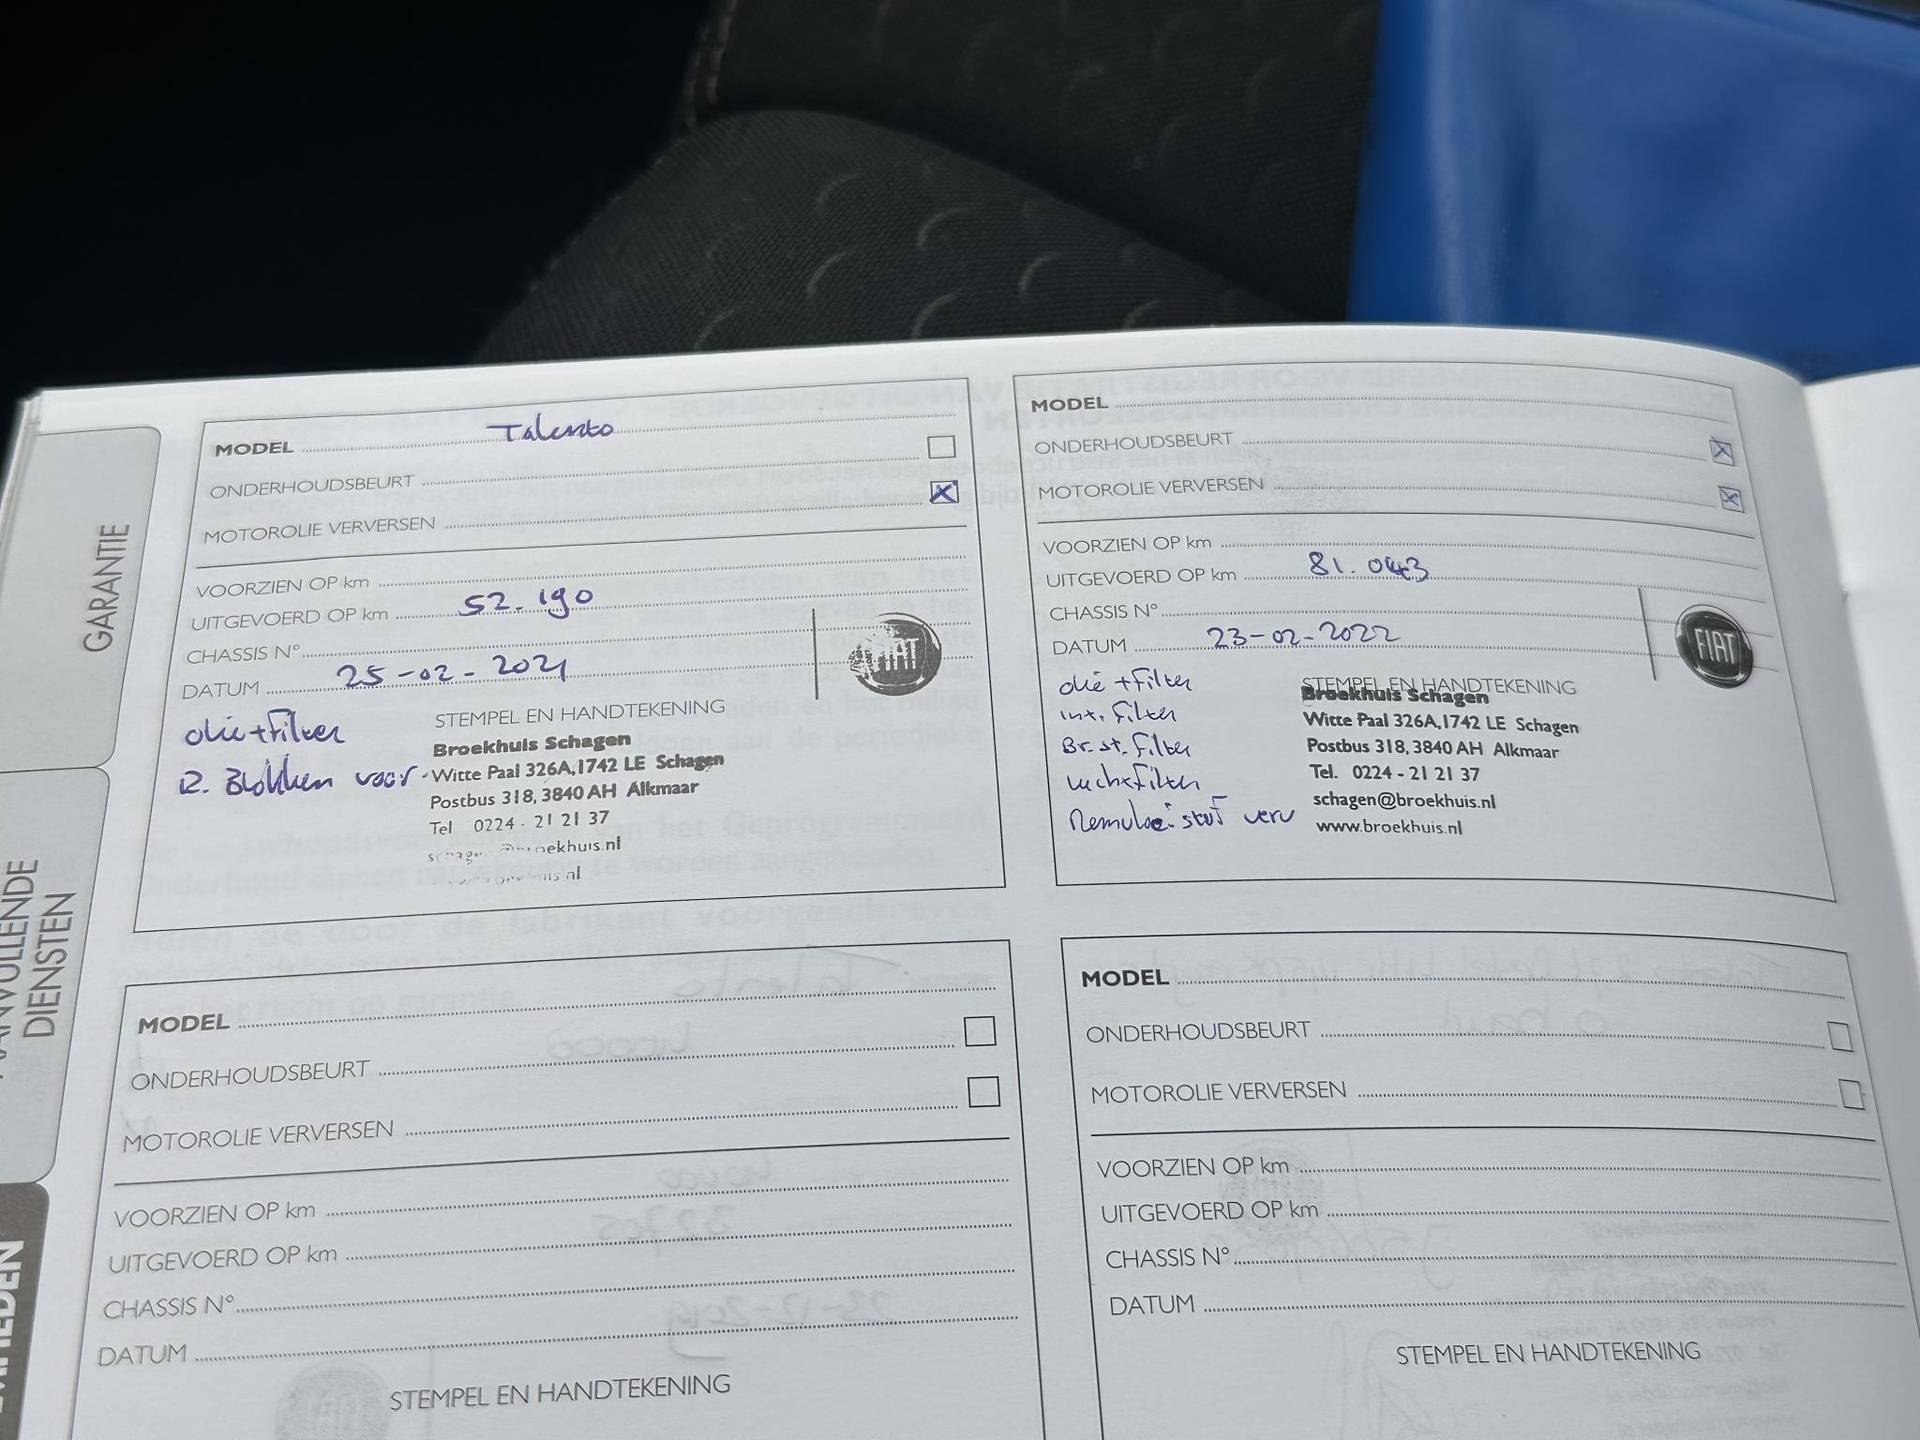 GARANTIE
AANVULLENDE
DIENSTEN
MODEL Talento
ONDERHOUDSBEURT
MOTOROLIE VERVERSEN
VOORZIEN OP km
UITGEVOERD OP km 52.190
CHASSIS N°
DATUM 25-02-2021
FIAT
STEMPEL EN HANDTEKENING
olie+filter
R. Blokken voor
Broekhuis Schagen
Witte Paal 326A,1742 LE Schagen
Postbus 318, 3840 AH Alkmaar
Tel 0224 - 21 21 37
MODEL
ONDERHOUDSBEURT
MOTOROLIE VERVERSEN
VOORZIEN OP km
UITGEVOERD OP km 81.043
CHASSIS N°
DATUM 23-02-2022
FIAT
STEMPEL EN HANDTEKENING
olie +filter
int. filter
Br.st. filter
luchtfilter
Remvloeistof verv
Broekhuis Schagen
Witte Paal 326A,1742 LE Schagen
Postbus 318, 3840 AH Alkmaar
Tel. 0224 - 21 21 37
schagen@broekhuis.nl
www.broekhuis.nl
MODEL
ONDERHOUDSBEURT
MOTOROLIE VERVERSEN
VOORZIEN OP km
UITGEVOERD OP km
CHASSIS N°
DATUM
STEMPEL EN HANDTEKENING
MODEL
ONDERHOUDSBEURT
MOTOROLIE VERVERSEN
VOORZIEN OP km
UITGEVOERD OP km
CHASSIS N°
DATUM
STEMPEL EN HANDTEKENING